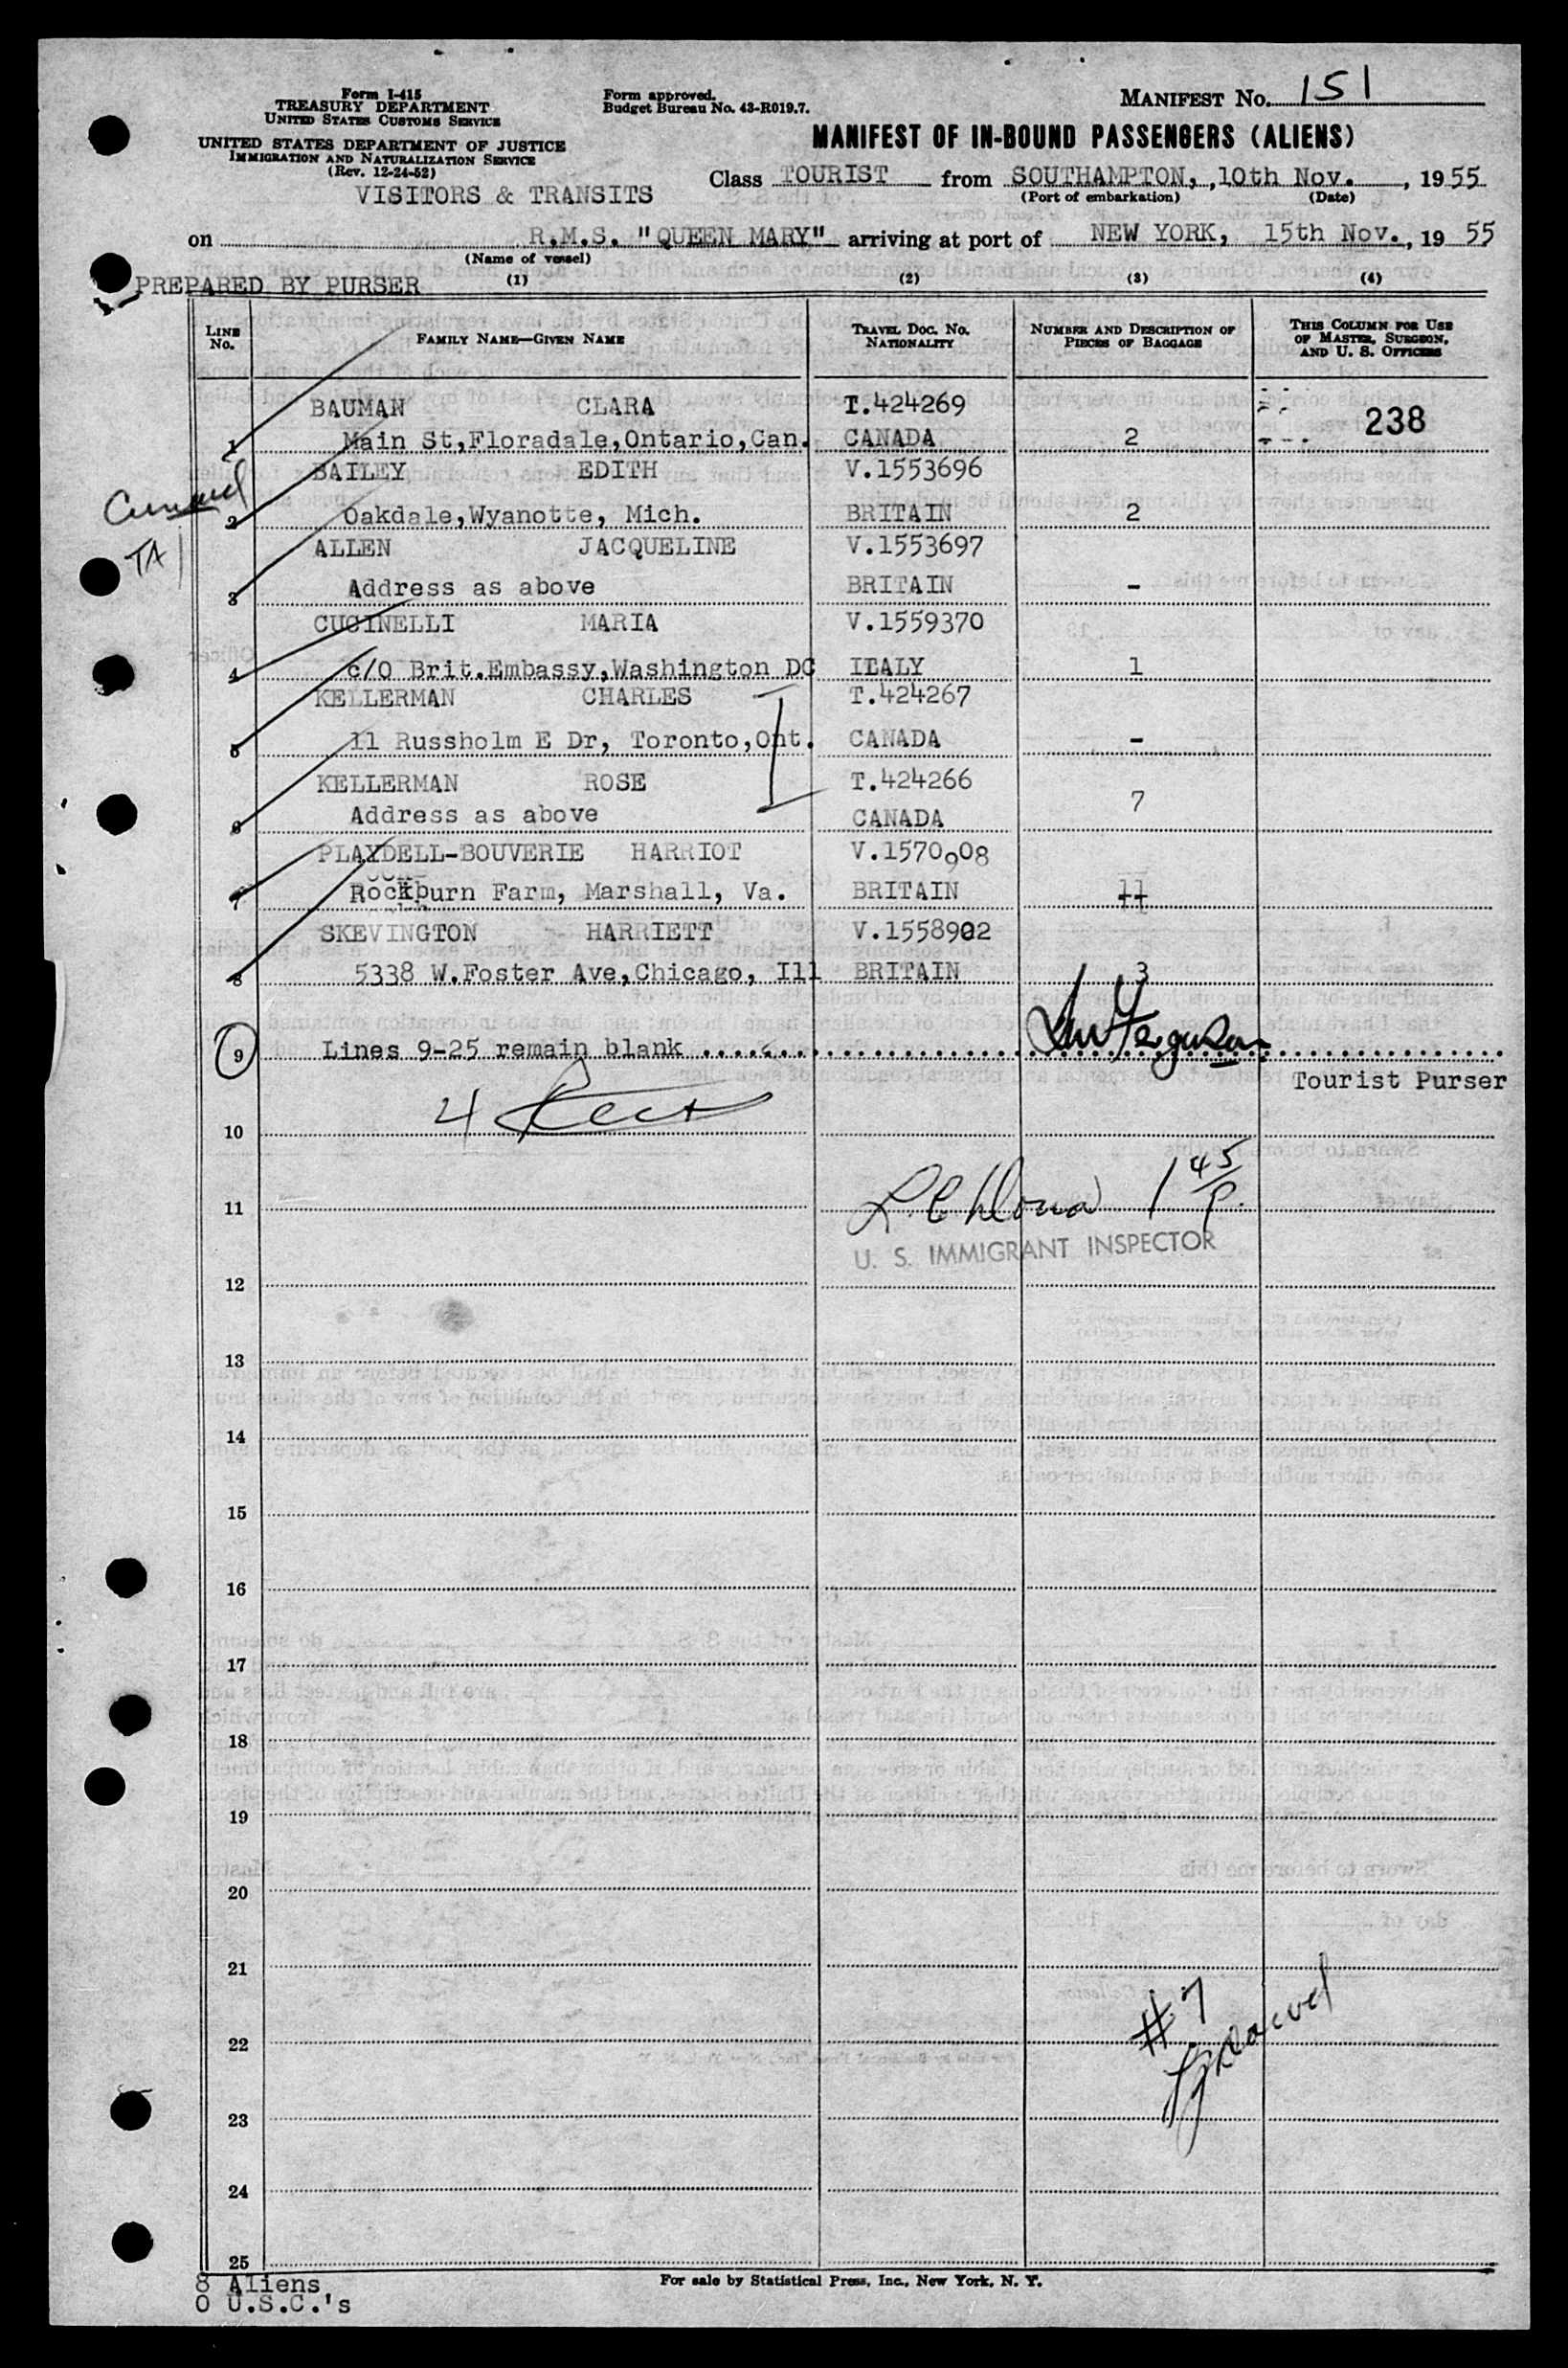 Form I-415
TREASURY DEPARTMENT
UNITED STATES CUSTOMS SERVICE
UNITED STATES DEPARTMENT OF JUSTICE
IMMIGRATION AND NATURALIZATION SERVICE
(Rev. 12-24-52)
Form approved.
Budget Bureau No. 43-R019.7.
MANIFEST No. 151
MANIFEST OF IN-BOUND PASSENGERS (ALIENS)
VISITORS & TRANSITS
Class TOURIST from SOUTHAMPTON, , 10th Nov. , 1955
(Port of embarkation) (Date)
on R.M.S. "QUEEN MARY" arriving at port of NEW YORK, 15th Nov. , 19 55
(Name of vessel)
PREPARED BY PURSER
(1) (2) (3) (4)
LINE No. FAMILY NAME—GIVEN NAME TRAVEL DOC. NO. NATIONALITY NUMBER AND DESCRIPTION OF PIECES OF BAGGAGE THIS COLUMN FOR USE OF MASTER, SURGEON, AND U. S. OFFICERS
BAUMAN CLARA T.424269 238
1 Main St,Floradale,Ontario,Can. CANADA 2
BAILEY EDITH V.1553696
Cunard
2 Oakdale,Wyanotte, Mich. BRITAIN 2
ALLEN JACQUELINE V.1553697
TA
3 Address as above BRITAIN -
CUCINELLI MARIA V.1559370
4 c/O Brit.Embassy,Washington DC ITALY 1
KELLERMAN CHARLES T.424267
5 11 Russholm E Dr, Toronto,Ont. CANADA -
KELLERMAN ROSE T.424266
7
6 Address as above CANADA
PLAYDELL-BOUVERIE HARRIOT V.1570908
7 Rockburn Farm, Marshall, Va. BRITAIN 11
SKEVINGTON HARRIETT V.1558902
8 5338 W.Foster Ave,Chicago, Ill BRITAIN 3
9 Lines 9-25 remain blank ....
Ferguson
Tourist Purser
4
10
1 45/P.
11
U. S. IMMIGRANT INSPECTOR
12
13
14
15
16
17
18
19
20
21
#7
22
23
24
25
8 Aliens
0 U.S.C.'s
For sale by Statistical Press, Inc., New York, N. Y.